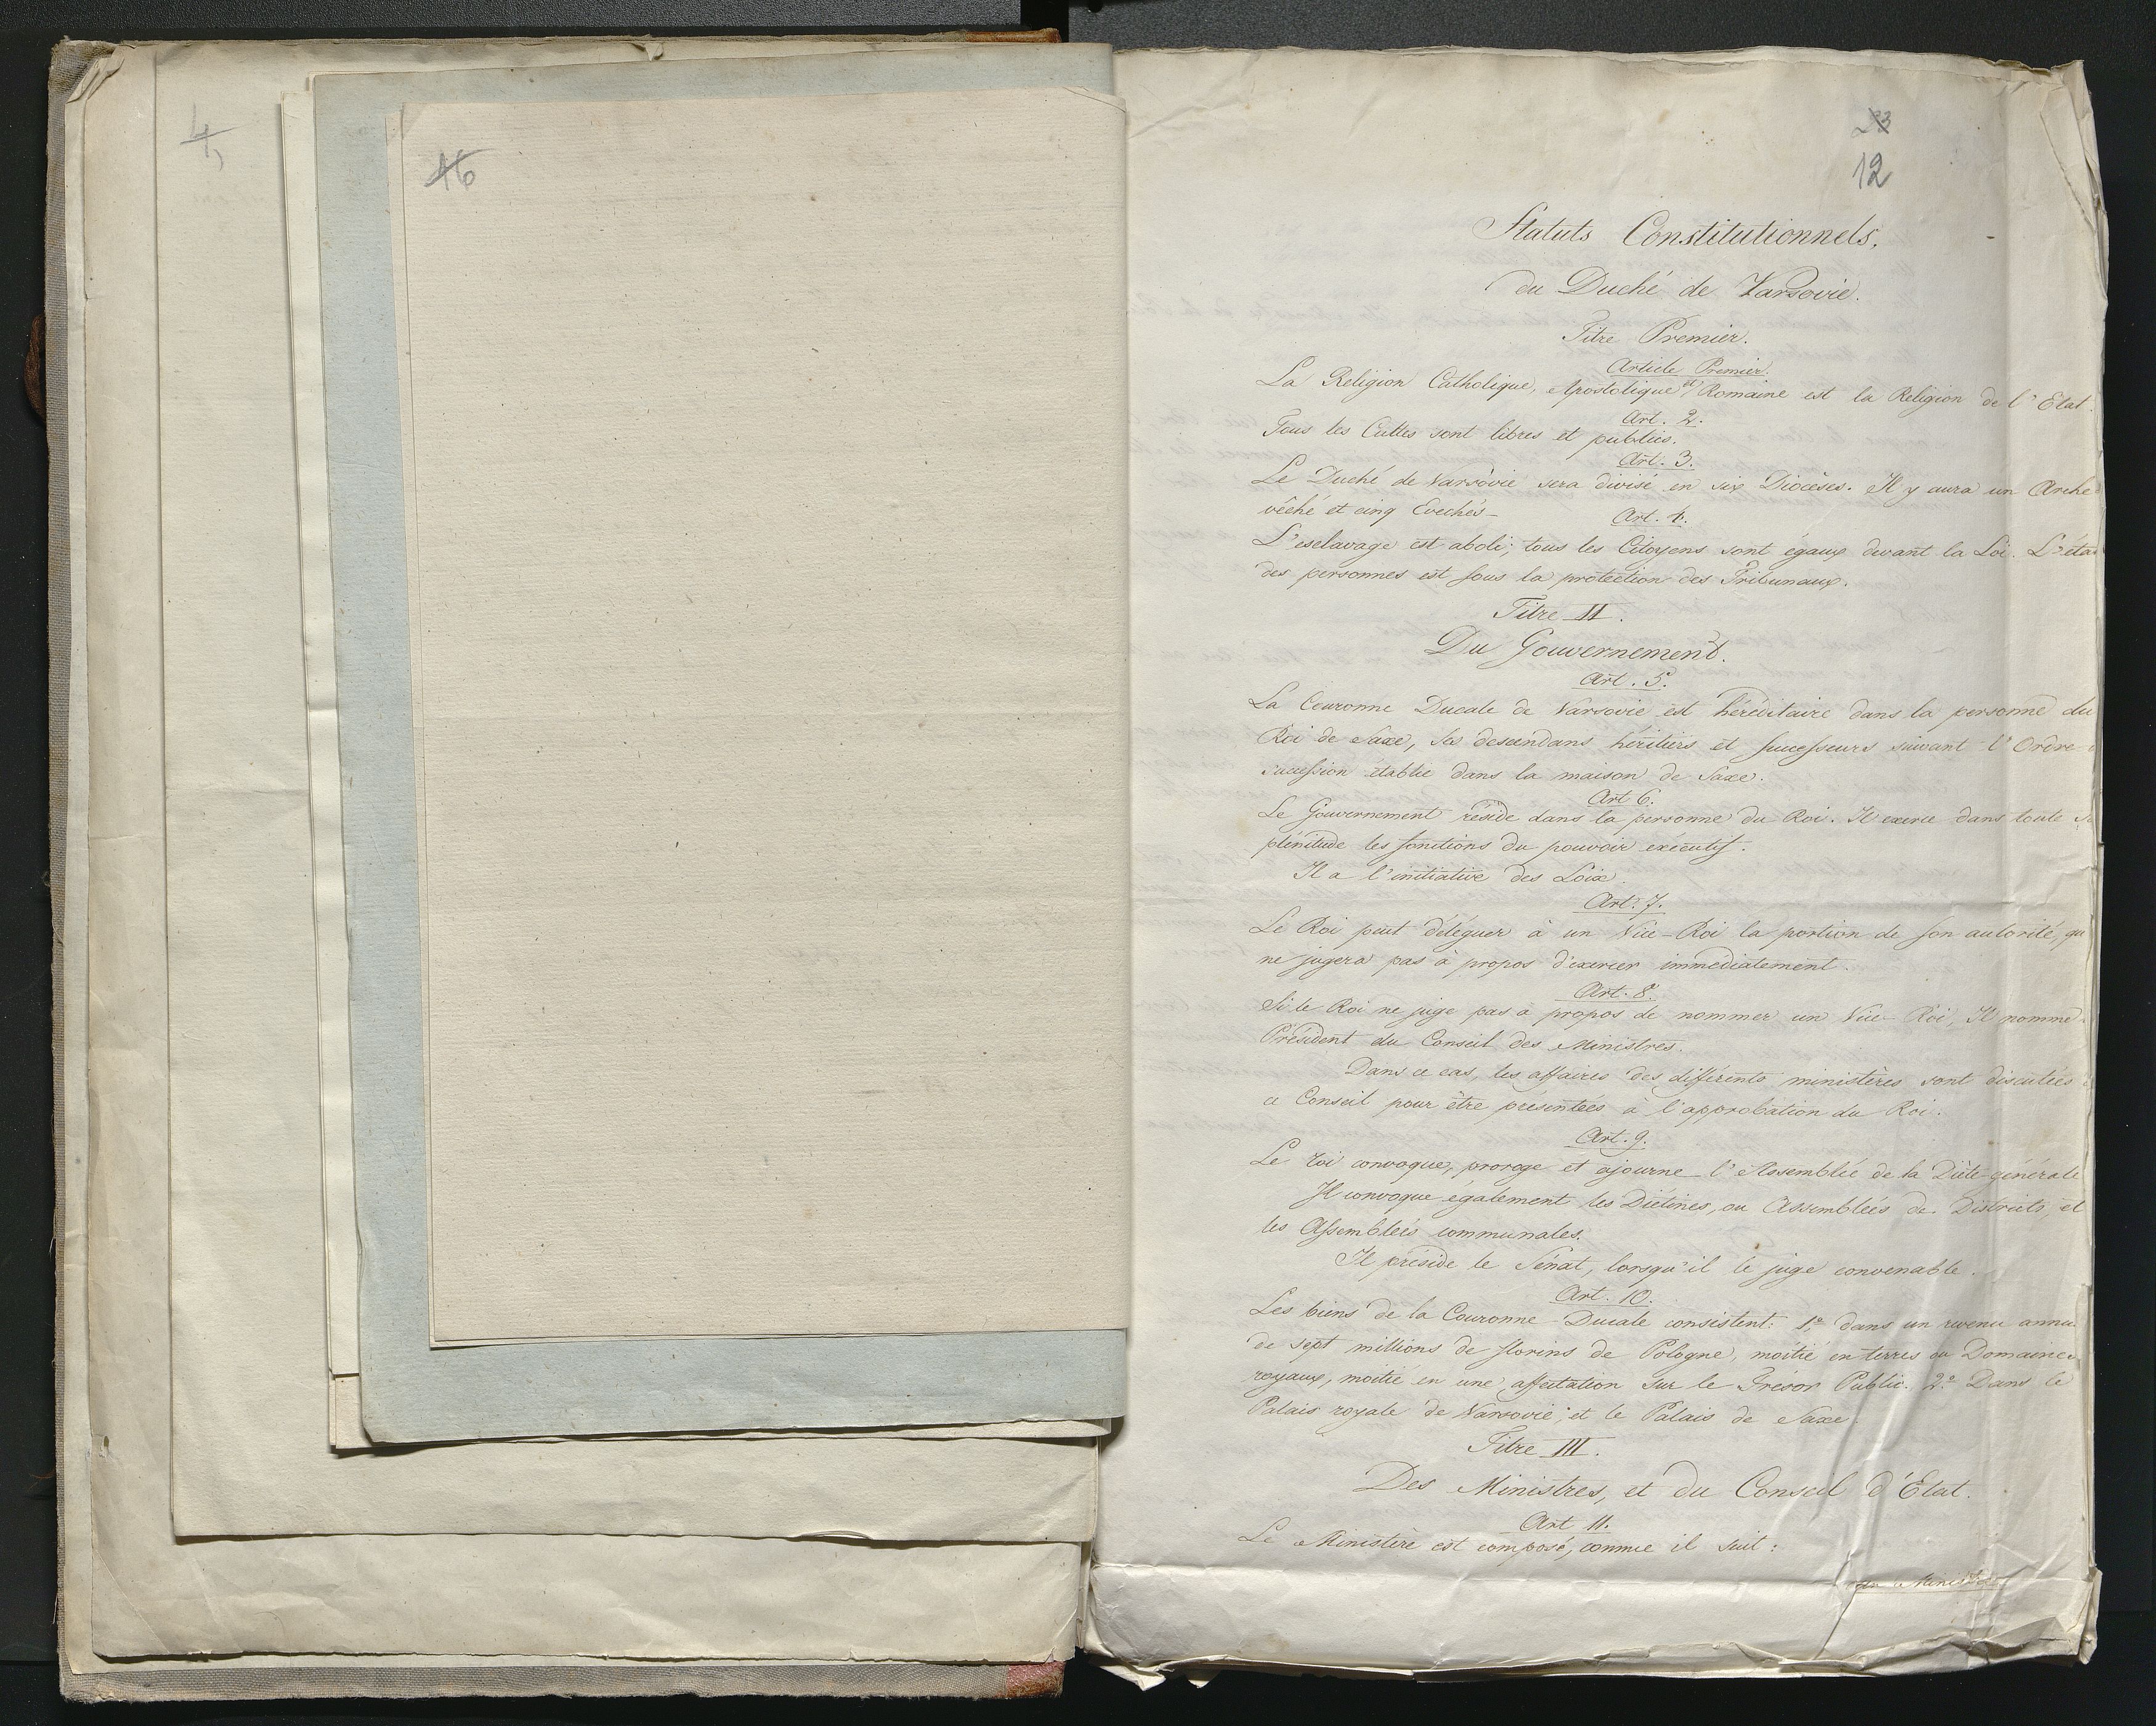 4,
16
23
12
Statuts Constitutionnels.
du Duché de Varsovie.
Titre Premier.
Article Premier.
La Religion Catholique, Apostolique et Romaine est la Religion de l'Etat.
Art. 2.
Tous les Cultes sont libres et publics.
Art. 3.
Le Duché de Varsovie sera divisé en six Diocèses. Il y aura un Arche-
vêché et cinq Evechés_
Art. 4.
L'esclavage est aboli; tous les Citoyens sont égaux devant la Loi. L'éta
des personnes est sous la protection des Tribunaux.
Titre II.
Du Gouvernement.
Art. 5.
La Couronne Ducale de Varsovie est héréditaire dans la personne du
Roi de Saxe, ses descendans héritiers et successeurs suivant l'Ordre
succession établie dans la maison de Saxe.
Art 6.
Le Gouvernement réside dans la personne du Roi. Il exerce dans toute sa
plénitude les fonctions du pouvoir exécutif.
Il a l'initiative des Loix.
Art. 7.
Le Roi peut déléguer à un Vice-Roi la portion de son autorité, qu
ne jugera pas à propos d'exercer immediatement.
Art. 8.
Si le Roi ne juge pas à propos de nommer un Vice-Roi, Il nomme
Président du Conseil des Ministres.
Dans ce cas, les affaires des différents ministères sont discutées
ce Conseil pour être présentées à l'approbation du Roi.
Art. 9.
Le roi convoque, proroge et ajourne l'Assemblée de la Diète générale
Il convoque également les Diétines, ou Assemblées de Districts, et
les Assemblées communales.
Il préside le Sénat, lorsqu'il le juge convenable.
Art. 10.
Les biens de la Couronne Ducale consistent: 1° dans un revenu annu
de sept millions de florins de Pologne, moitié en terres ou Domaines
royaux, moitié en une affectation sur le Trésor Public. 2° Dans le
Palais royale de Varsovie, et le Palais de Saxe.
Titre III.
Des Ministres, et du Conseil d'Etat.
Art 11.
Le Ministère est composé, comme il suit:
un Ministre